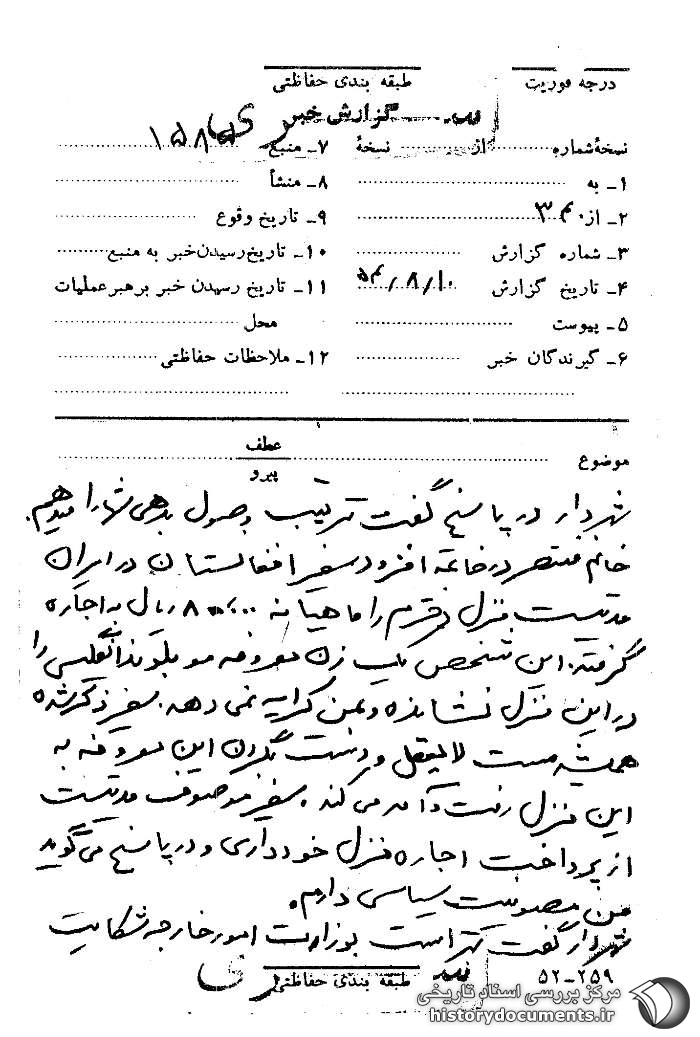 درجه فوریت
طبقه بندی حفاظتی
گزارش خبر
نسخهٔ شماره ........ از ........ نسخهٔ
۷ـ منبع ۱۵۸۵
۱ـ به
۸ـ منشأ
۲ـ از ۳۴۰
۹ـ تاریخ وقوع
۳ـ شماره گزارش
۱۰ـ تاریخ رسیدن خبر به منبع
۴ـ تاریخ گزارش ۵۴/۸/۱۰
۱۱ـ تاریخ رسیدن خبر برهبر عملیات
۵ـ پیوست
محل
۶ـ گیرندگان خبر
۱۲ـ ملاحظات حفاظتی
موضوع
عطف
پیرو
شهردار در پاسخ گفت ترتیب وصول بدهی شما را میدهم.
خانم منتصر در خاتمه افزود سفیر افغانستان در ایران
مدتیست منزل دخترم را ماهیانه ریال به اجاره
گرفته. این شخص یک زن معروفه مو بلوند انگلیسی را
در این منزل نشانده و بمن کرایه نمی دهد. سفیر ذکر شده
همیشه مست لایعقل و دست بگردن این معروفه به
این منزل رفت و آمد می کند. سفیر موصوف مدتیست
از پرداخت اجاره منزل خودداری و در پاسخ می گوید
من مصونیت سیاسی دارم.
شهردار گفت بهتر است بوزارت امور خارجه شکایت
طبقه بندی حفاظتی
۵۲-۲۵۹
مرکز بررسی اسناد تاریخی
historydocuments.ir